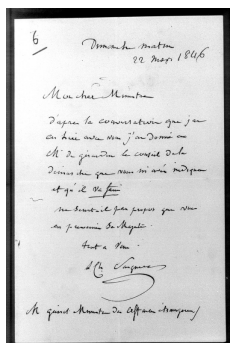 6
Dimanche matin
22 mars 1846
Mon cher Ministre
D'après la conversation que j'ai
eu hier avec vous j'ai donné a
Mr de Girardin le conseil de la
demarche que vous m'avez indiquée
et qu'il va faire
ne serait il pas propos que vous
en Sa Majesté
tout a vous
Mr Guizot Ministre des affaires étrangères